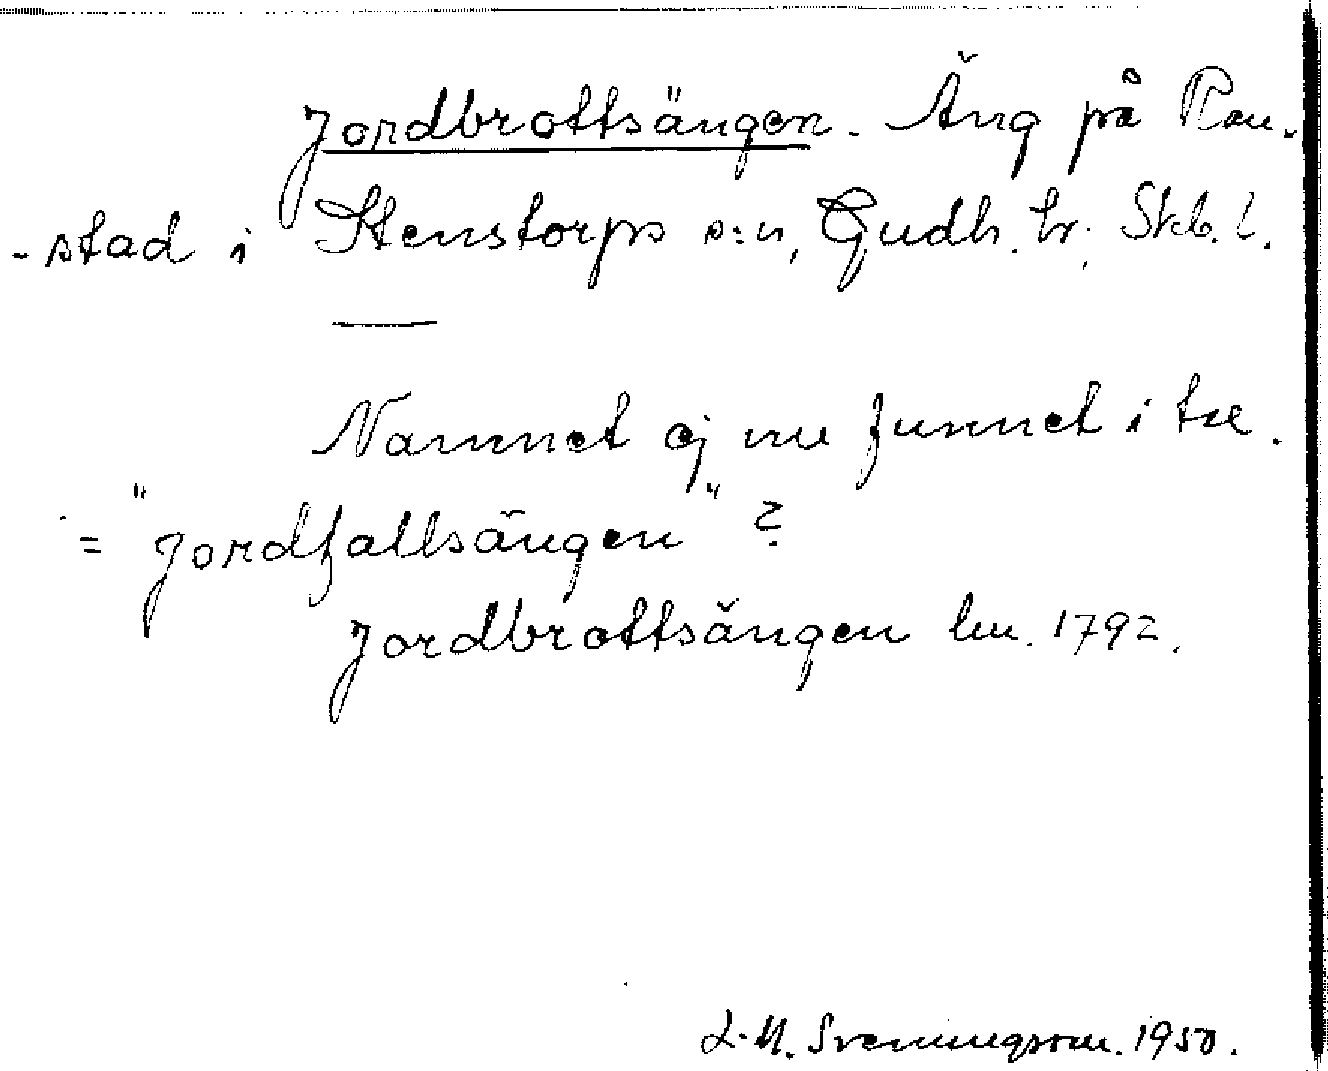 Jordbrottsängen. Äng på Ran-
-stad i Stenstorps s:n, Gudh. hr. Skb. l.
Namnet ej nu funnet i
= "Jordfallsängen" ?
Jordbrottsängen lm. 1792.
L. M. Svenungsson. 1950.